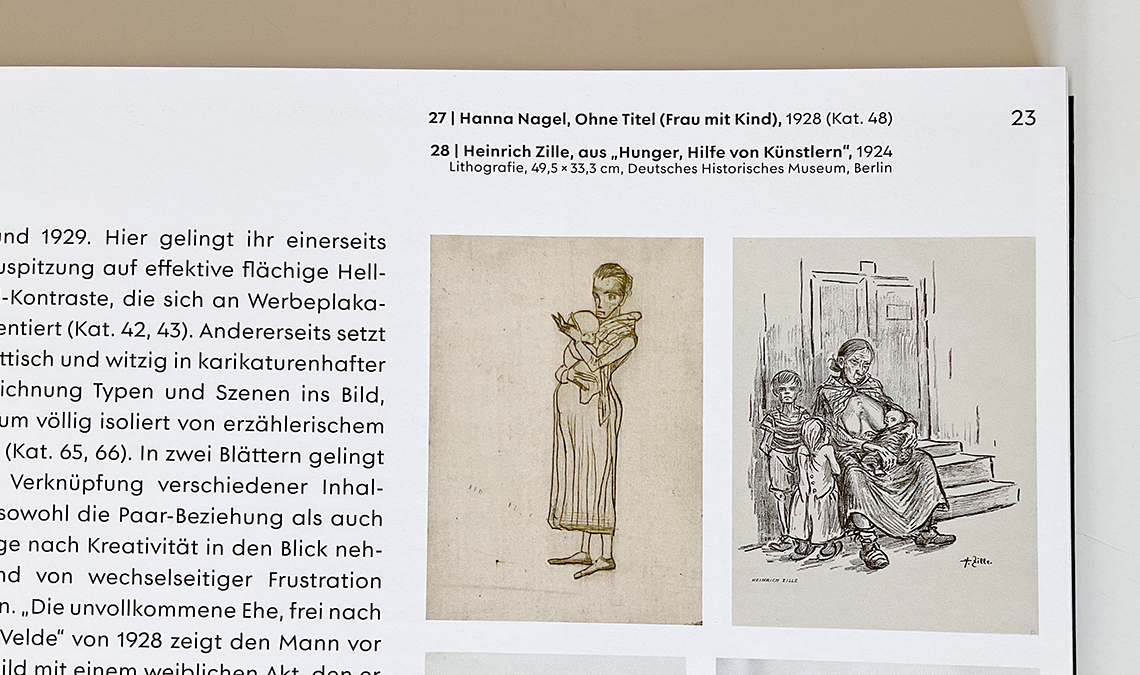 27 | Hanna Nagel, Ohne Titel (Frau mit Kind), 1928 (Kat. 48)
23
28 | Heinrich Zille, aus „Hunger, Hilfe von Künstlern“, 1924
Lithografie, 49,5 × 33,3 cm, Deutsches Historisches Museum, Berlin
und 1929. Hier gelingt ihr einerseits
uspitzung auf effektive flächige Hell-
-Kontraste, die sich an Werbeplaka-
entiert (Kat. 42, 43). Andererseits setzt
ttisch und witzig in karikaturenhafter
eichnung Typen und Szenen ins Bild,
um völlig isoliert von erzählerischem
(Kat. 65, 66). In zwei Blättern gelingt
Verknüpfung verschiedener Inhal-
sowohl die Paar-Beziehung als auch
ge nach Kreativität in den Blick neh-
nd von wechselseitiger Frustration
n. „Die unvollkommene Ehe, frei nach
Velde“ von 1928 zeigt den Mann vor
ild mit einem weiblichen Akt, den er-
HEINRICH ZILLE
H. Zille.